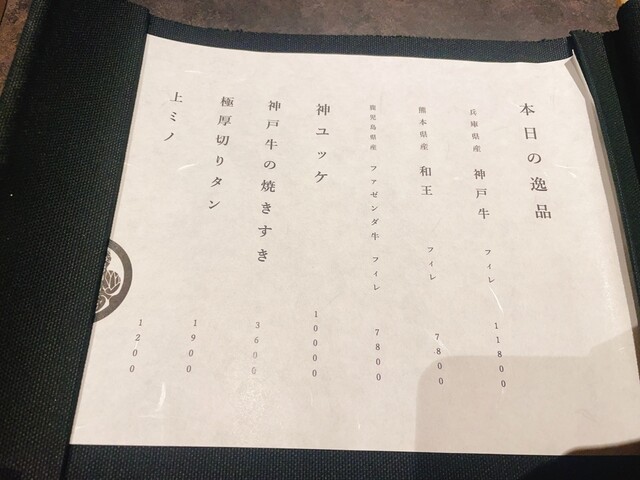 本日の逸品
兵庫県産 神戸牛 フィレ 11800
熊本県産 和王 フィレ 7800
鹿児島県産 ファゼンダ牛 フィレ 7800
神ユッケ 10000
神戸牛の焼きすき 3600
極厚切りタン 1900
上ミノ 1200